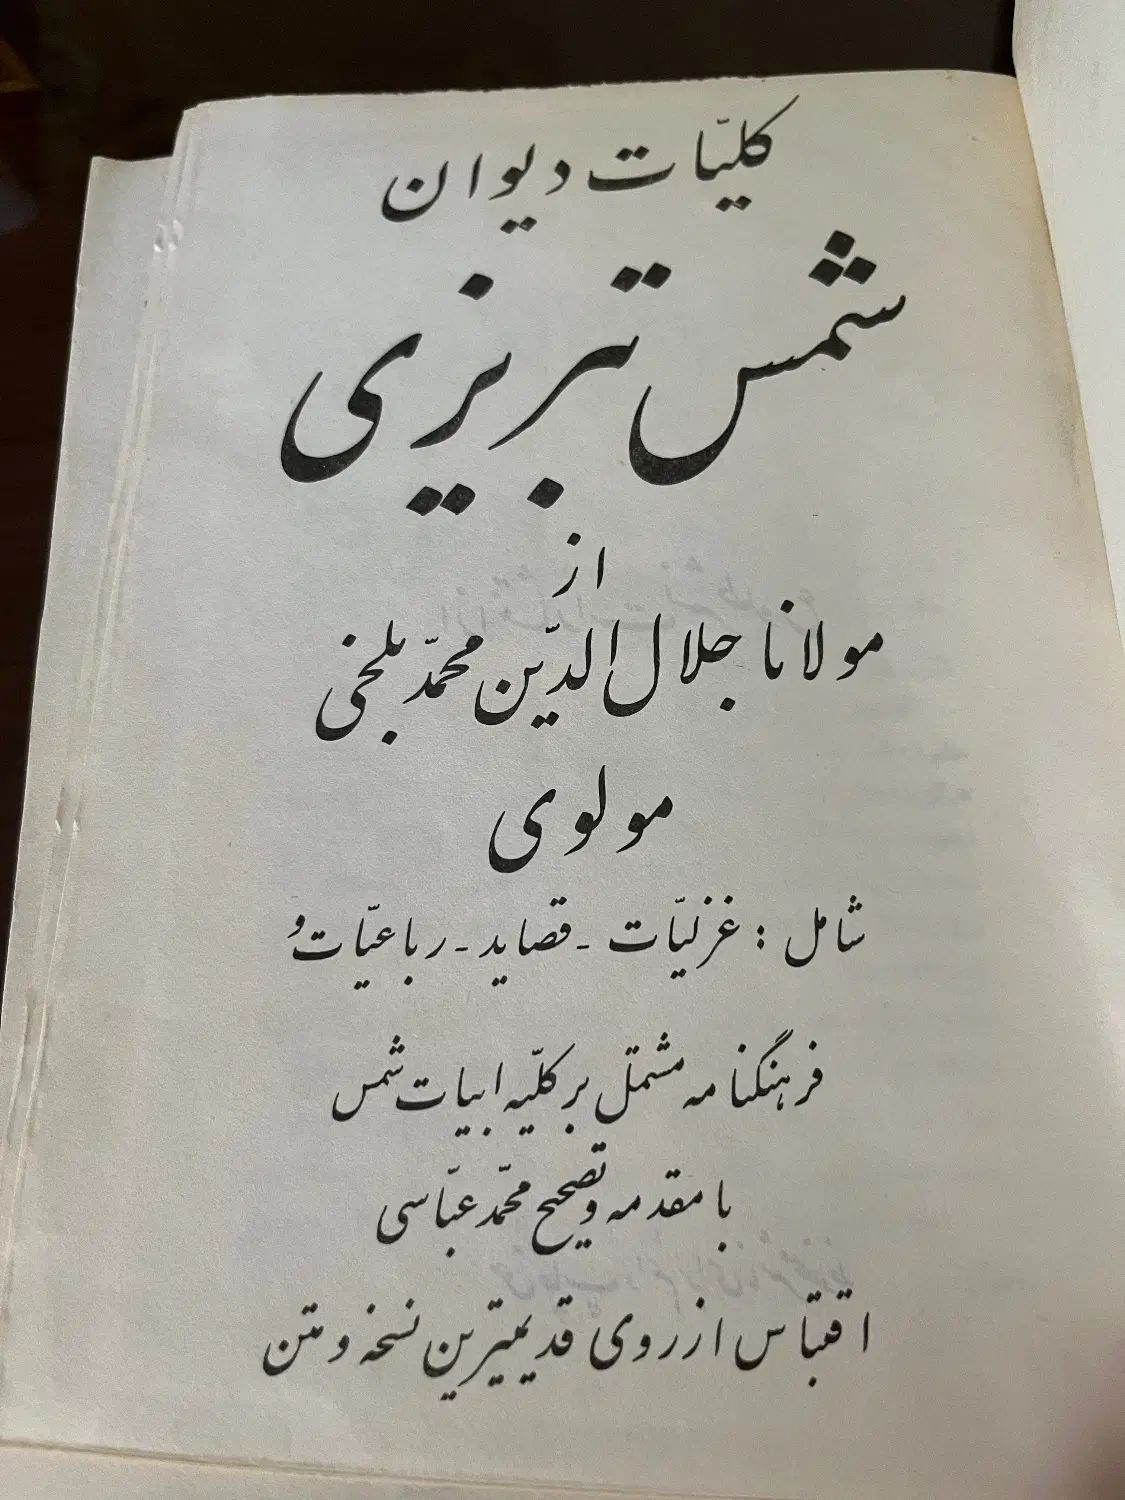 کلیّات دیوان
شمس تبریزی
از
مولانا جلال الدّین محمّد بلخی
مولوی
شامل : غزلیّات - قصاید - رباعیّات و
فرهنگنامه مشتمل بر کلّیه ابیات شمس
با مقدمه و تصحیح محمّد عبّاسی
اقتباس از روی قدیمیترین نسخه و متن